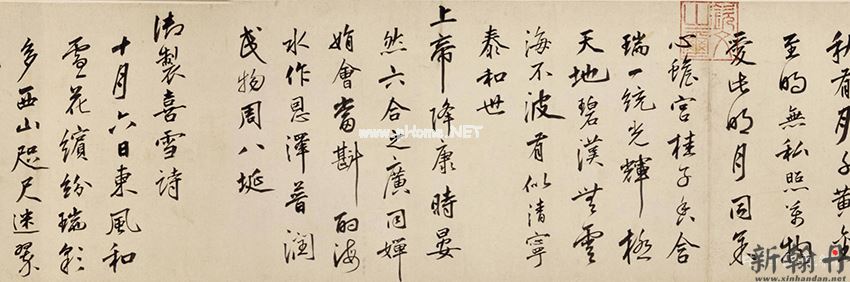 至明無私照萬物
愛此明月同
心蟾宮桂子含
瑞一統光輝極
天地碧漢無雲
海不波有似清寧
泰和世
上帝降康時晏
然六合之廣同嬋
娟會當斟酌海
水作恩澤普潤
民物周八埏
御製喜雪詩
十月六日東風和
雪花繽紛瑞彩
多西山咫尺迷翠
新翰丹
www.xinhandan.net